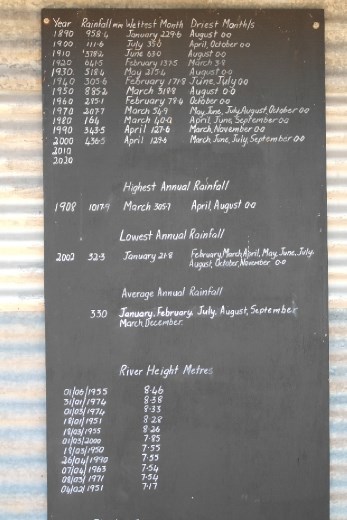 Year Rainfall mm Wettest Month Driest Month/s
1890 958.4 January 229.6 August 0.0
1900 111.6 July 35.0 April, October 0.0
1910 378.2 June 63.0 August 0.0
1920 641.5 February 137.5 March 3.8
1930 518.4 May 215.4 August 0.0
1940 305.6 February 171.8 June, July 0.0
1950 885.2 March 319.8 August 0.0
1960 285.1 February 78.6 October 0.0
1970 207.7 March 54.9 May, June, July, August, October 0.0
1980 164 March 40.2 April, June, September 0.0
1990 343.5 April 127.6 March, November 0.0
2000 436.5 April 129.6 March, June, July, September 0.0
2010
2020
Highest Annual Rainfall
1908 1017.9 March 305.7 April, August 0.0
Lowest Annual Rainfall
2002 32.3 January 21.8 February, March, April, May, June, July,
August, October, November 0.0
Average Annual Rainfall
330 January, February, July, August, September
March, December.
River Height Metres
01/06/1955 8.46
31/01/1974 8.38
01/03/1974 8.33
18/01/1951 8.28
18/03/1955 8.26
01/03/2000 7.85
18/03/1950 7.55
26/04/1990 7.55
07/04/1963 7.54
08/03/1971 7.54
04/02/1951 7.17